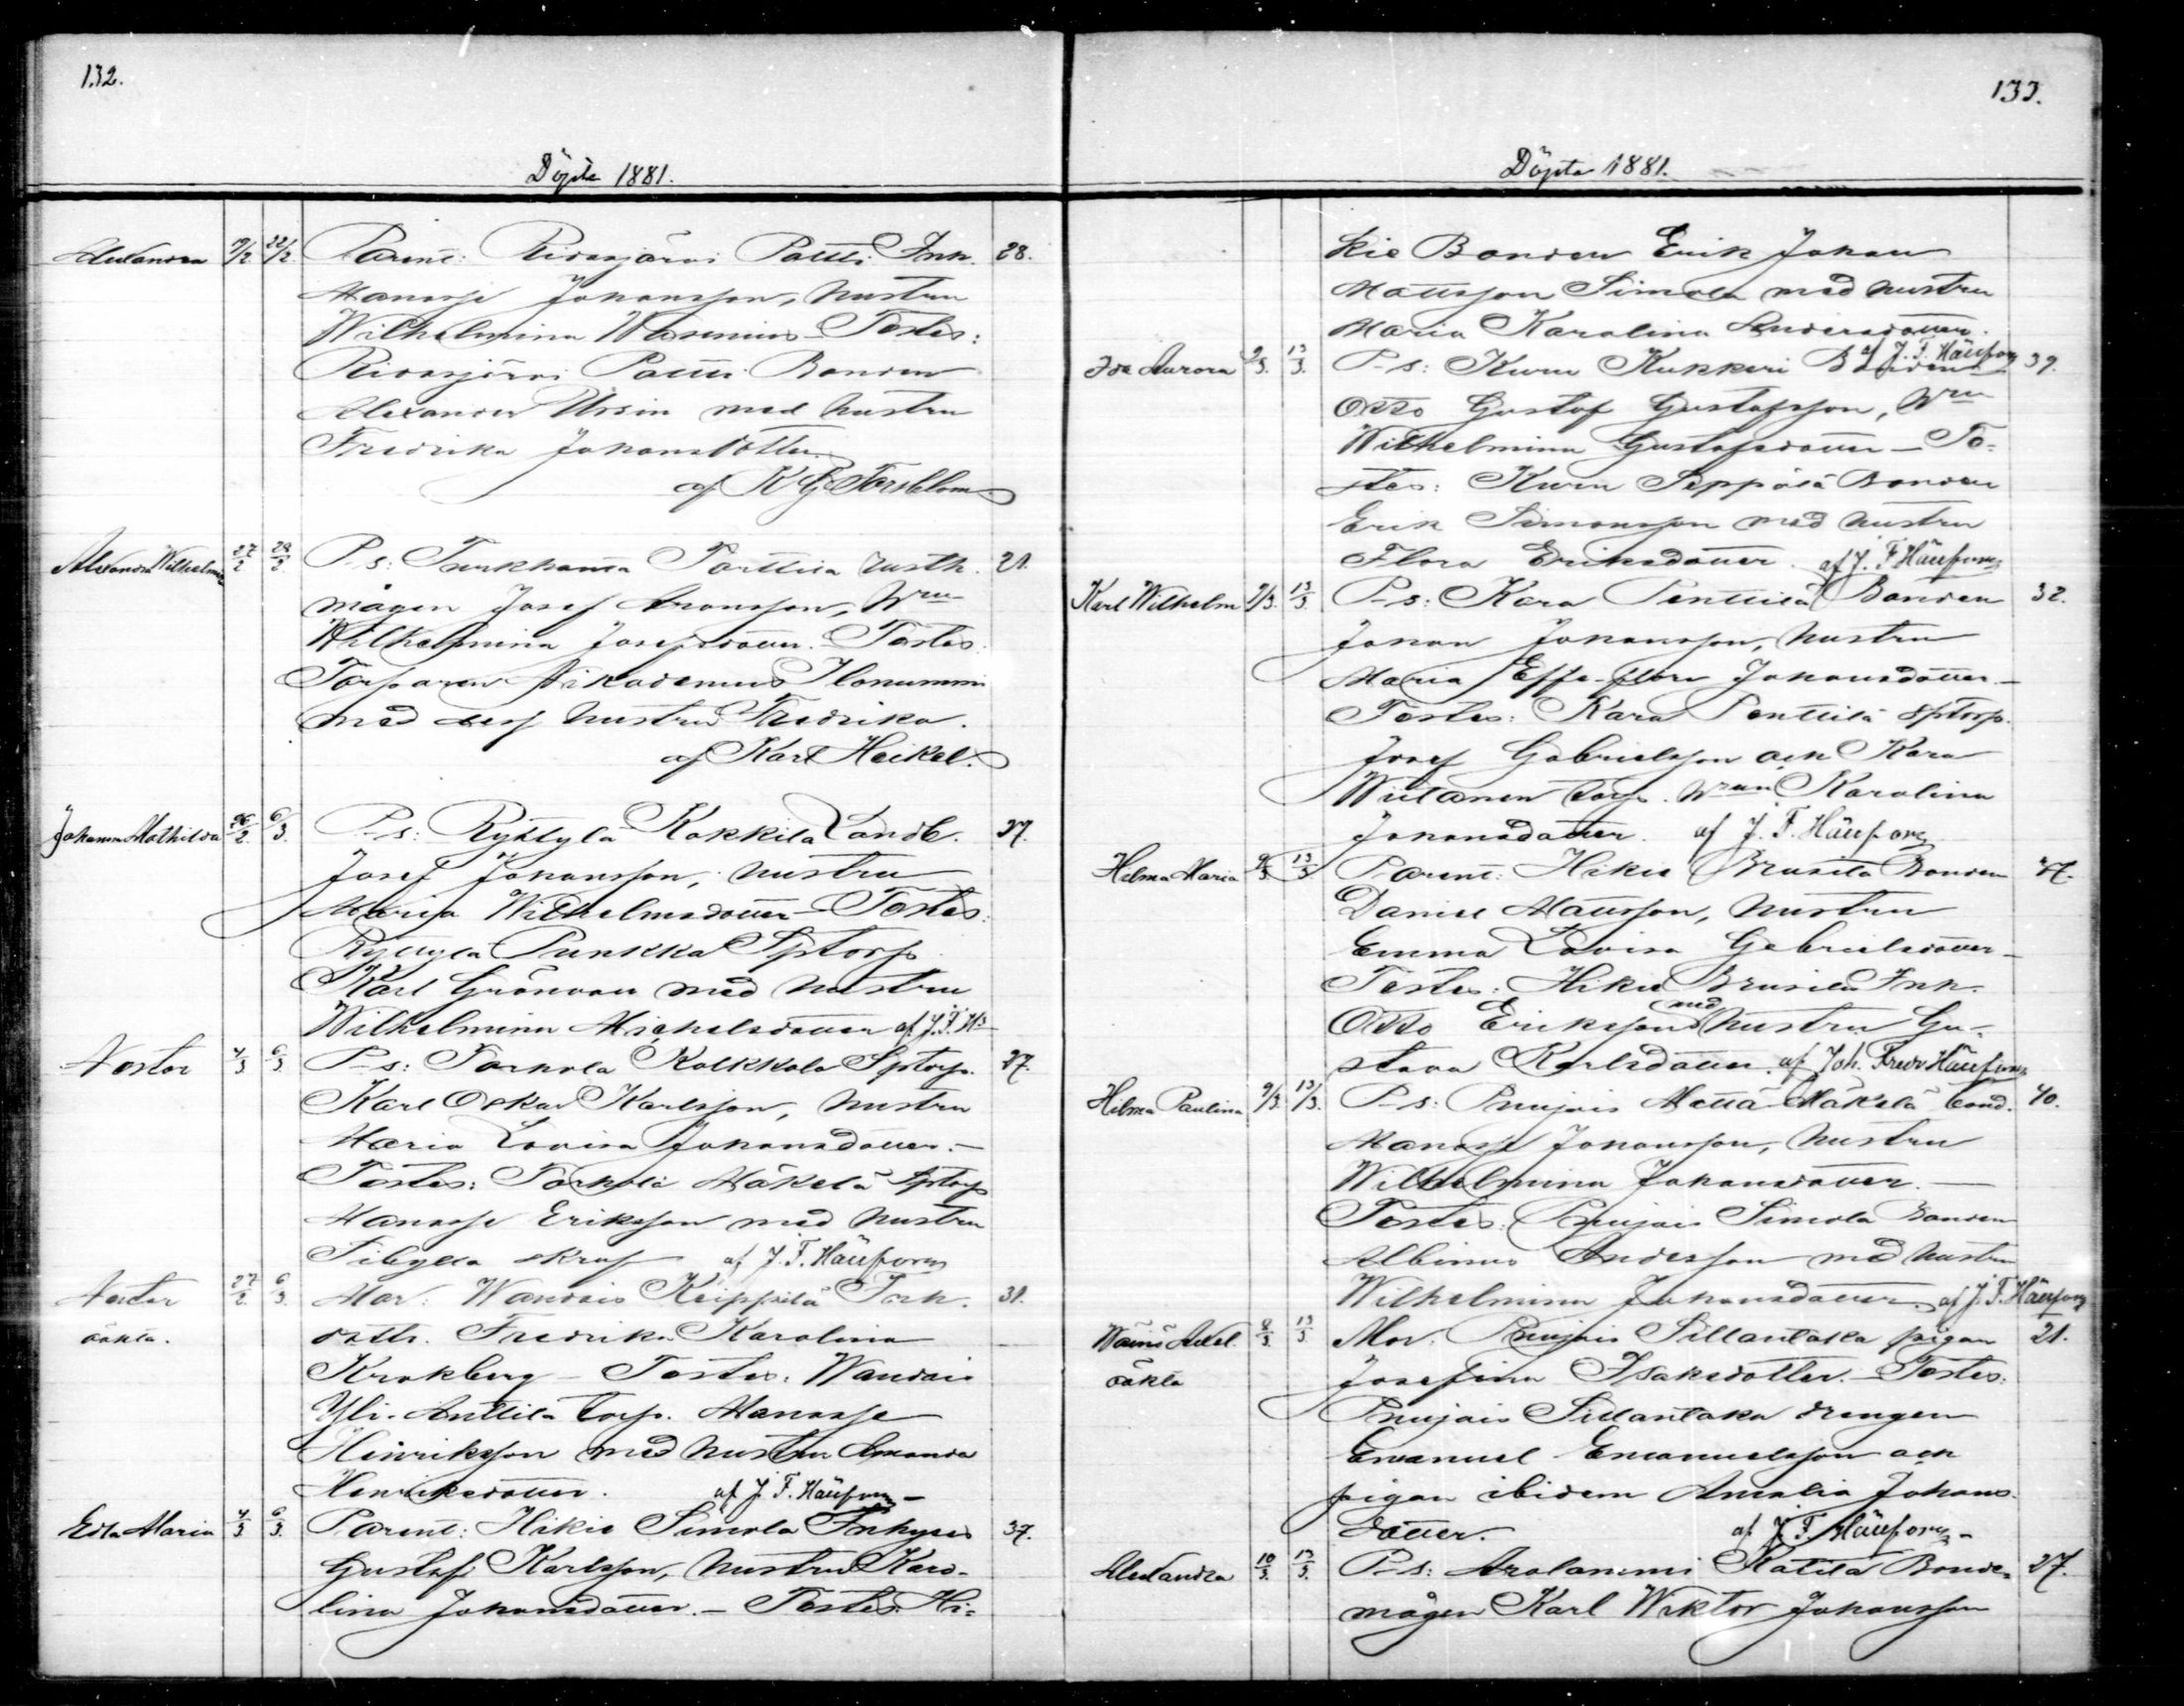 132.
Döpte 1881.
Alexandra 9/2 22/2 Parent: Ridasjärvi Pattli Inh. 28.
Manasse Johansson, hustru
Wilhelmina Wasenius - Testes:
Ridasjärvi Pattli Bonden
Alexander Ursin med hustru
Fredrika Johansdotter.
af K G Forsblom
Alexandra Wilhelmina 27/2 28/2 P-s: Turkhauta Porttila rusth. 21.
mågen Josef Aronsson, Hru
Wilhelmina Josefsdotter. - Testes:
Torparen Nikodemus Ilonummi
med dess hustru Fredrika.
af Karl Heikel.
Johanna Mathilda 26/2 6/3. P-s: Ryttylä Kokkila Landb. 37.
Josef Johansson, hustru
Maria Wilhelmsdotter - Testes:
Ryttylä Punkka Sptorp.
Karl Grönvall med hustru
Wilhelmina Michelsdotter af J. F. H-
Nestor 4/3 6/3 P-s: Torhola Kolkkala Sptorp. 27.
Karl Oskar Karlsson, hustru
Maria Lovisa Johansdotter. -
Testes: Torhola Mäkelä Sptorp
Manasse Eriksson med hustru
Sibylla Skruf af J. F. Häufors
Nestor 27/2. 6/3. Mor: Wandois Keippilä Inh. 31.
oäkta. dottr. Fredrika Karolina
Krokberg - Testes: Wandois
Yli-Anttila torp. Manasse
Henriksson med hustru Amanda
Henriksdotter. af J. F. Häufors -
Edla Maria 4/3 6/3. Parent: Hikiä Simola Inhyses 37.
Gustaf Karlsson, hustru Karo-
lina Johansdotter. - Testes: Hi-
133.
Döpta 1881.
kiä Bonden Erik Johan
Mattsson Simola med hustru
Maria Karolina Andersdotter.
af J. F. Häufors
Ida Aurora 9/3. 13/3. P-s: Kuru Kukkari Bonden 39.
Otto Gustaf Gustafsson, Hru
Wilhelmina Gustafsdotter - Te-
stes: Kuru Seppälä Bonden
Erik Simonsson med hustru
Flora Eriksdotter. af J. F Häufors
Karl Wilhelm 7/3. 13/3. P-s: Kara Penttilä Bonden 32.
Johan Johansson, hustru
Maria Johansdotter. -
Testes: Kara Penttilä Sptorp.
Josef Gabrielsson och Kara
Wiitanen torp. Hrun Karolina
Johansdotter. af J. F. Häufors
Helma Maria 9/3. 13/3 Parent: Hikiä Brusila Bonden 47.
Daniel Mattsson, hustru
Emma Lovisa Gabrielsdotter -
Testes: Hikiä Brusila Inh.
Otto Eriksson med hustru Gu-
stava Karlsdotter. af Joh. Fredr Häufors
Hilma Paulina 9/3. 13/3. P-s: Puujais Mattä-Mäkelä bond. 40.
Manasse Johansson, hustru
Wilhelmina Johansdotter. -
Testes. Puujais Simola Bonden
Albinus Andersson med hustru
Wilhelmina Johansdotter. af J. F. Häufors
Wäinö Axel. 8/3. 13/3 Mor. Puujais Sillantaka pigan 21.
oäkta Josefina Isaksdotter. - Testes.
Puujais Sillantaka drengen
Emanuel Emanuelsson och
pigan ibidem Amalia Johans-
dotter. af J. F. Häufors -
Alexandra 10/3. 13/3. P-s: Arolammi Katila Bonde- 27.
mågen Karl Wiktor Johansson